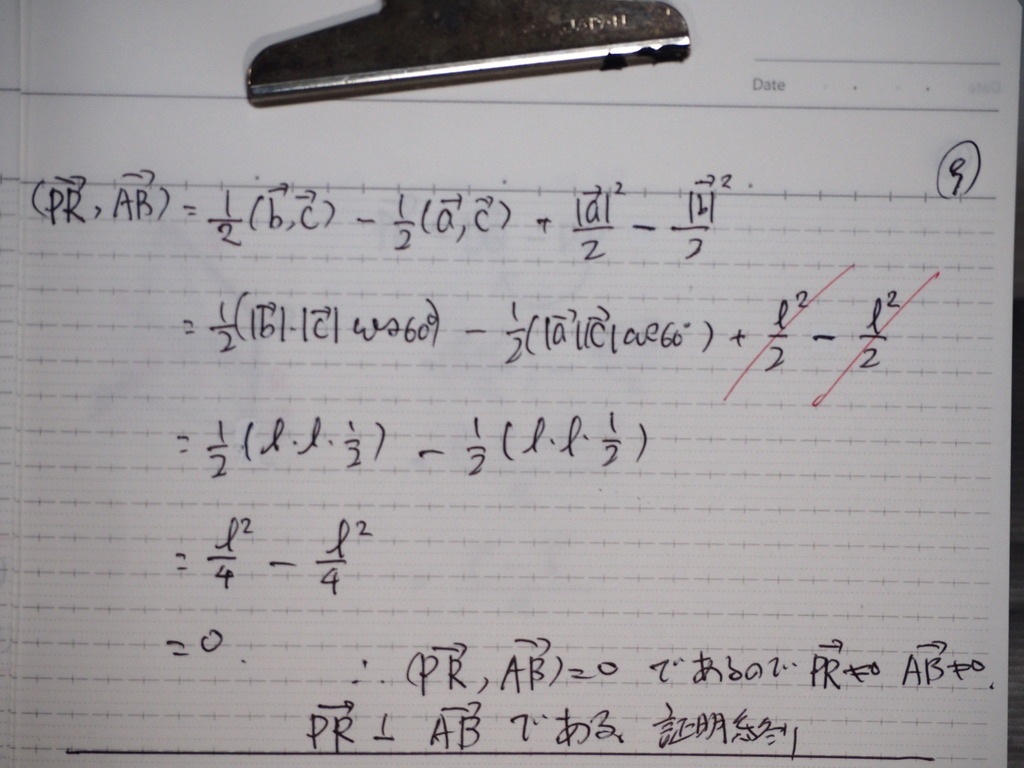 JAPAN
Date
⑨
(PR→, AB→) = 1/2 (b→, c→) - 1/2 (a→, c→) + |a→|²/2 - |b→|²/2
= 1/2 (|b→|·|c→| cos60°) - 1/2 (|a→||c→| cos60°) + l²/2 - l²/2
= 1/2 (l·l·1/2) - 1/2 (l·l·1/2)
= l²/4 - l²/4
= 0.
∴ (PR→, AB→) = 0 であるので PR→≠0 AB→≠0.
PR→ ⊥ AB→ である、証明終り